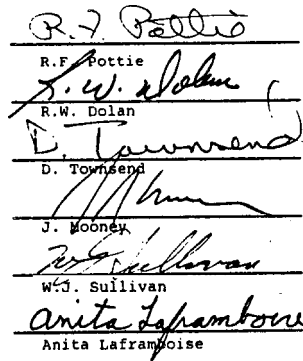 R.F. Pottie
R.F. Pottie
R.W. Dolan
R.W. Dolan
D. Townsend
D. Townsend
J. Mooney
W.J. Sullivan
W.J. Sullivan
Anita Laframboise
Anita Laframboise